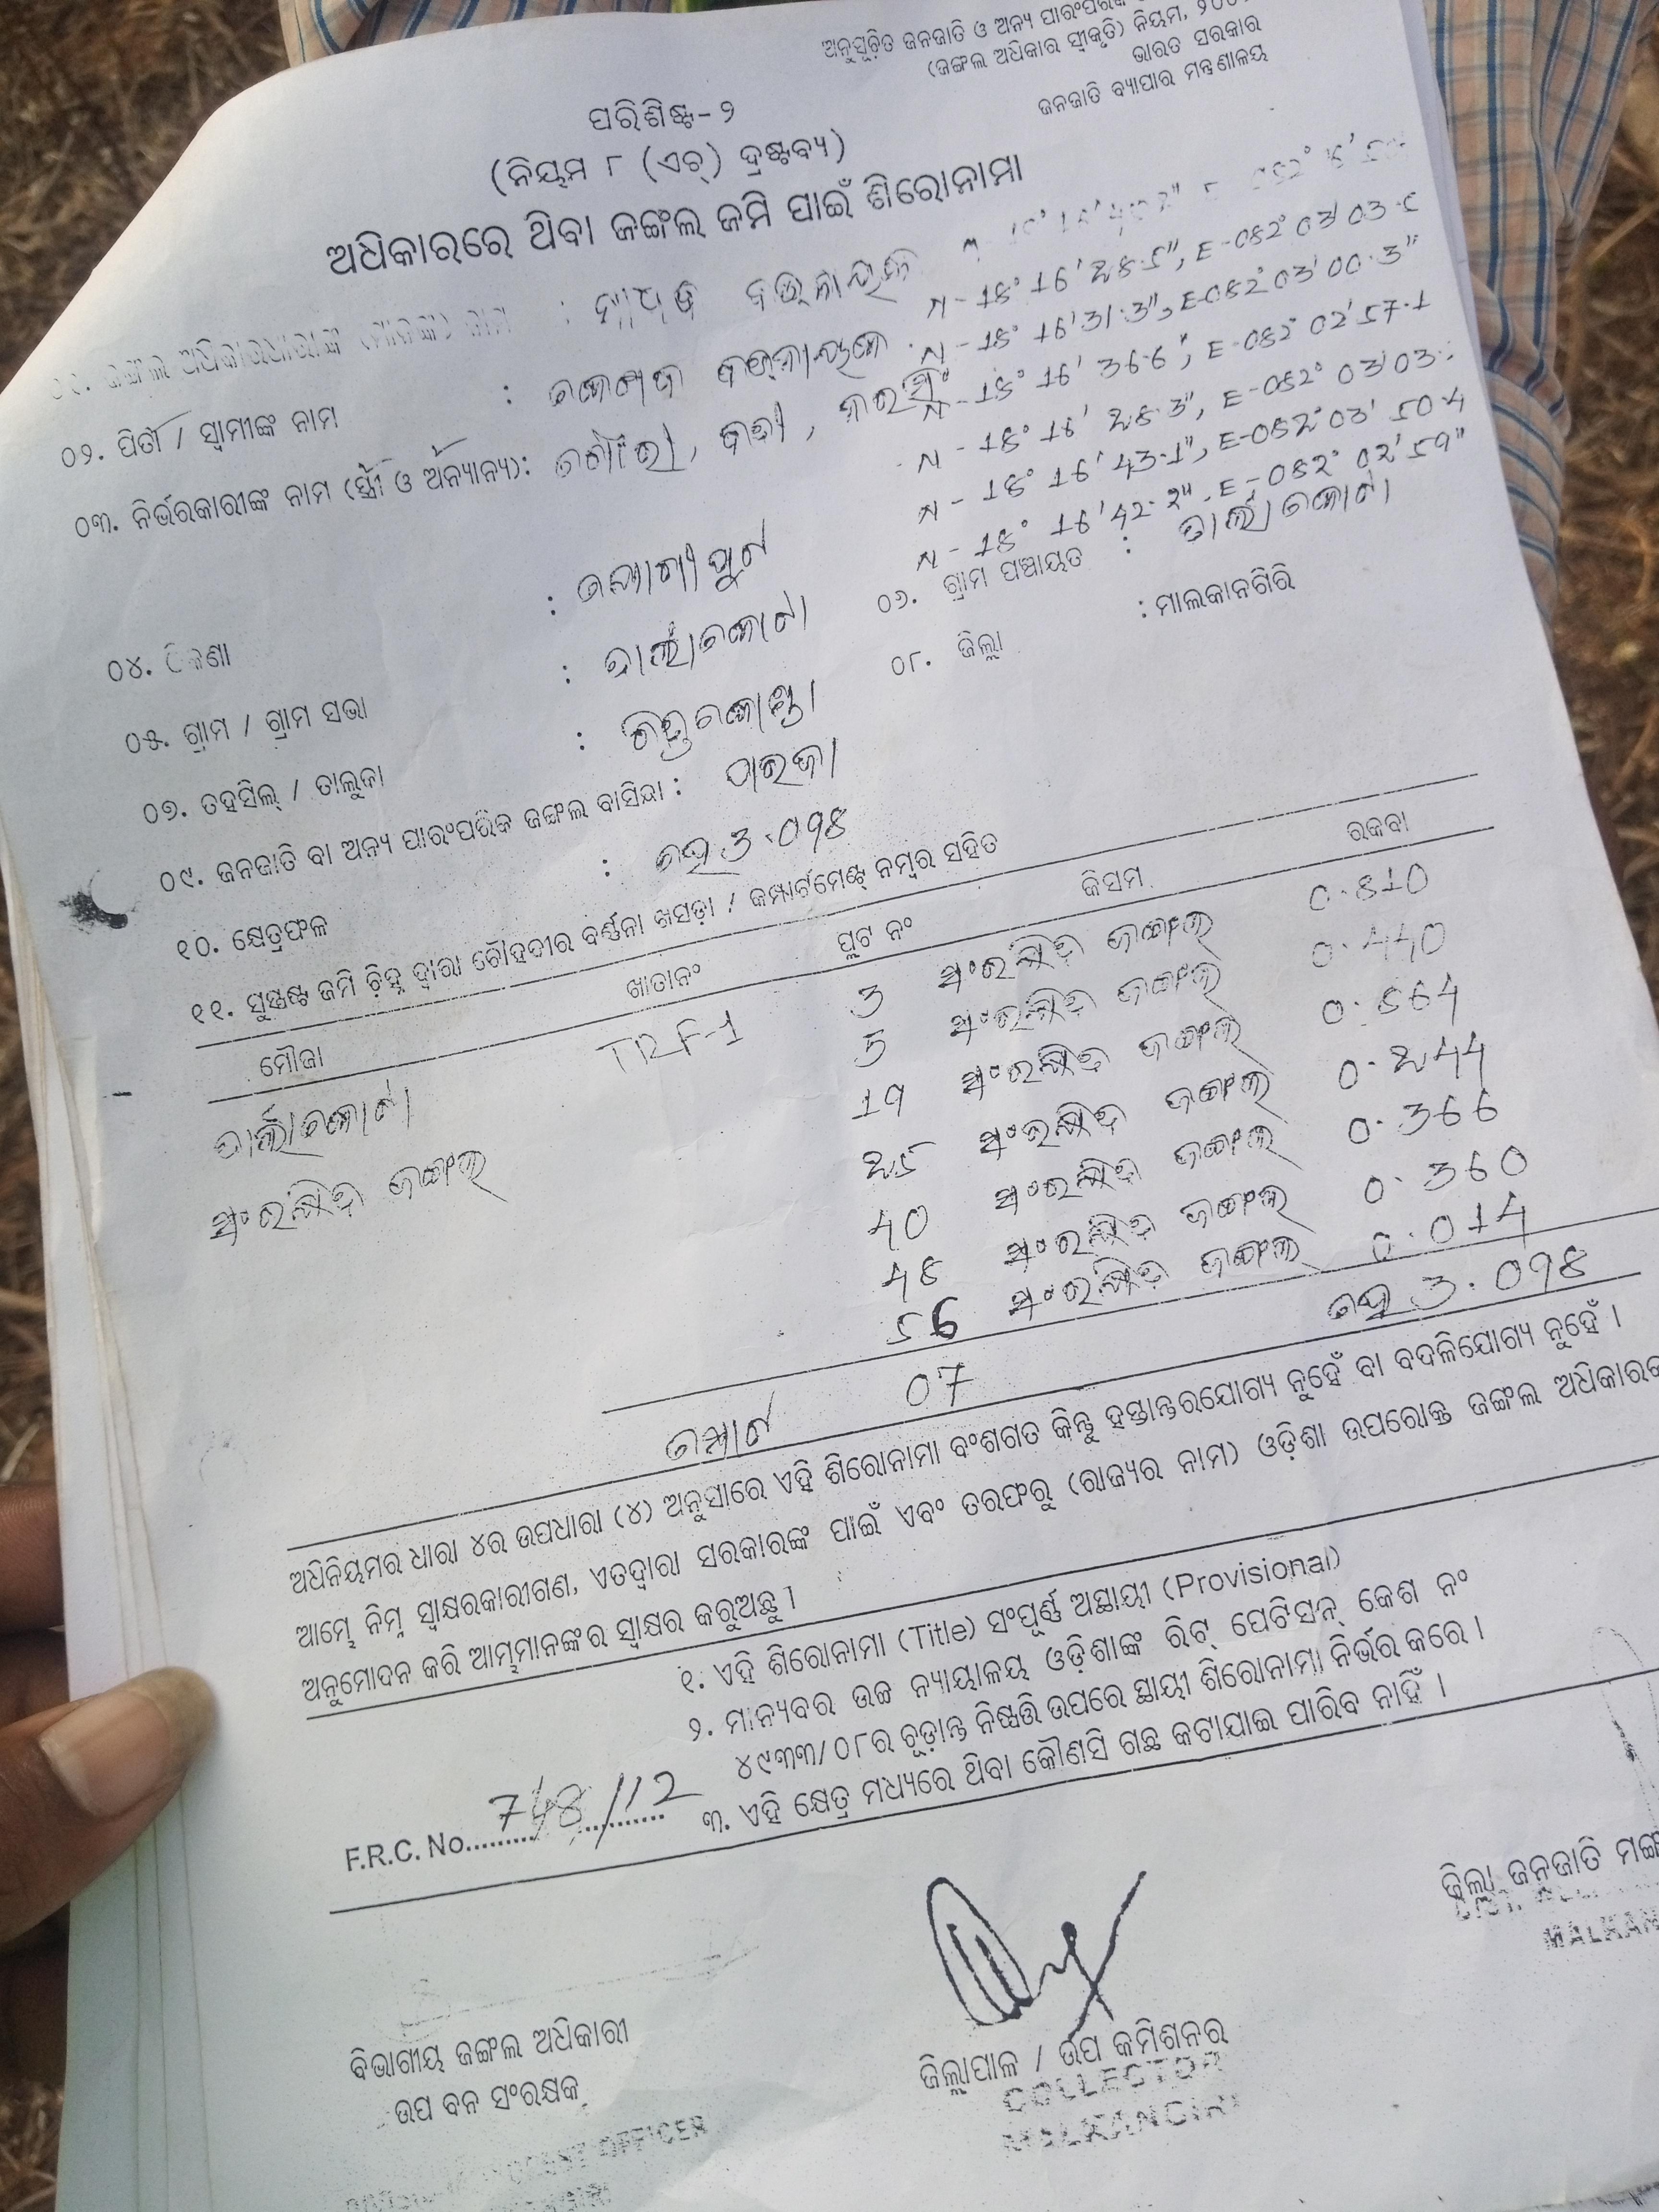 ଅନୁସୂଚିତ ଜନଜାତି ଓ ଅନ୍ୟ ପାରଂପରିକ
(ଜଙ୍ଗଲ ଅଧିକାର ସ୍ୱୀକୃତି) ନିୟମ,
ଭାରତ ସରକାର
ଜନଜାତି ବ୍ୟାପାର ମନ୍ତ୍ରଣାଳୟ
ପରିଶିଷ୍ଟ-୨
(ନିୟମ ୮ (ଏଚ୍) ଦ୍ରଷ୍ଟବ୍ୟ)
ଅଧିକାରରେ ଥିବା ଜଙ୍ଗଲ ଜମି ପାଇଁ ଶିରୋନାମା
ଜଙ୍ଗଲ ଅଧିକାରଧାରୀଙ୍କ ନାମ :
N-18° 16' 28.5", E-082° 03' 03.
୦୨. ପିତା / ସ୍ୱାମୀଙ୍କ ନାମ :
N-18° 16' 31.3", E-082° 03' 00.3"
N-18° 16' 36.6", E-082° 02' 57.1
୦୩. ନିର୍ଭରକାରୀଙ୍କ ନାମ (ସ୍ତ୍ରୀ ଓ ଅନ୍ୟାନ୍ୟ) :
N-18° 16' 28.3", E-082° 03' 03.
N-18° 16' 43.1", E-082° 03' 50.4
N-18° 16' 42.2", E-082° 02' 59"
୦୪. ଠିକଣା :
୦୫. ଗ୍ରାମ / ଗ୍ରାମ ସଭା : ୦୬. ଗ୍ରାମ ପଞ୍ଚାୟତ :
୦୭. ତହସିଲ୍ / ତାଲୁକା : ୦୮. ଜିଲ୍ଲା : ମାଲକାନଗିରି
୦୯. ଜନଜାତି ବା ଅନ୍ୟ ପାରଂପରିକ ଜଙ୍ଗଲ ବାସିନ୍ଦା : ପାରଜା
୧୦. କ୍ଷେତ୍ରଫଳ : ହେ 3.098
୧୧. ସୁସ୍ପଷ୍ଟ ଜମି ଚିହ୍ନ ଦ୍ୱାରା ଚୌହଦୀର ବର୍ଣ୍ଣନା ଖସଡ଼ା / କମ୍ପାର୍ଟମେଣ୍ଟ୍ ନମ୍ବର ସହିତ
ମୌଜା ଖାତାନଂ ପ୍ଲଟ ନଂ କିସମ ରକବା
TRF-1 3 ସଂରକ୍ଷିତ ଜଙ୍ଗଲ 0.810
5 ସଂରକ୍ଷିତ ଜଙ୍ଗଲ 0.440
ସଂରକ୍ଷିତ ଜଙ୍ଗଲ 19 ସଂରକ୍ଷିତ ଜଙ୍ଗଲ 0.864
25 ସଂରକ୍ଷିତ ଜଙ୍ଗଲ 0.244
40 ସଂରକ୍ଷିତ ଜଙ୍ଗଲ 0.366
48 ସଂରକ୍ଷିତ ଜଙ୍ଗଲ 0.360
56 ସଂରକ୍ଷିତ ଜଙ୍ଗଲ 0.014
ମୋଟ 07 ହେ 3.098
ଅଧିନିୟମର ଧାରା ୪ର ଉପଧାରା (୪) ଅନୁସାରେ ଏହି ଶିରୋନାମା ବଂଶଗତ କିନ୍ତୁ ହସ୍ତାନ୍ତରଯୋଗ୍ୟ ନୁହେଁ ବା ବଦଳିଯୋଗ୍ୟ ନୁହେଁ ।
ଆମ୍ଭେ ନିମ୍ନ ସ୍ୱାକ୍ଷରକାରୀଗଣ, ଏତଦ୍ୱାରା ସରକାରଙ୍କ ପାଇଁ ଏବଂ ତରଫରୁ (ରାଜ୍ୟର ନାମ) ଓଡ଼ିଶା ଉପରୋକ୍ତ ଜଙ୍ଗଲ
ଅନୁମୋଦନ କରି ଆମ୍ଭମାନଙ୍କର ସ୍ୱାକ୍ଷର କରୁଅଛୁ ।
୧. ଏହି ଶିରୋନାମା (Title) ସଂପୂର୍ଣ୍ଣ ଅସ୍ଥାୟୀ (Provisional)
୨. ମାନ୍ୟବର ଉଚ୍ଚ ନ୍ୟାୟାଳୟ ଓଡ଼ିଶାଙ୍କ ରିଟ୍ ପେଟିସନ୍ କେଶ ନଂ
୪୯୩୩/୦୮ର ଚୂଡ଼ାନ୍ତ ନିଷ୍ପତ୍ତି ଉପରେ ସ୍ଥାୟୀ ଶିରୋନାମା ନିର୍ଭର କରେ ।
୩. ଏହି କ୍ଷେତ୍ର ମଧ୍ୟରେ ଥିବା କୌଣସି ଗଛ କଟାଯାଇ ପାରିବ ନାହିଁ ।
F.R.C. No. 748/12
ଜିଲ୍ଲା ଜନଜାତି
ବିଭାଗୀୟ ଜଙ୍ଗଲ ଅଧିକାରୀ
ଉପ ବନ ସଂରକ୍ଷକ
ଜିଲ୍ଲାପାଳ / ଉପ କମିଶନର
COLLECTOR
MALKANGIRI
OFFICER